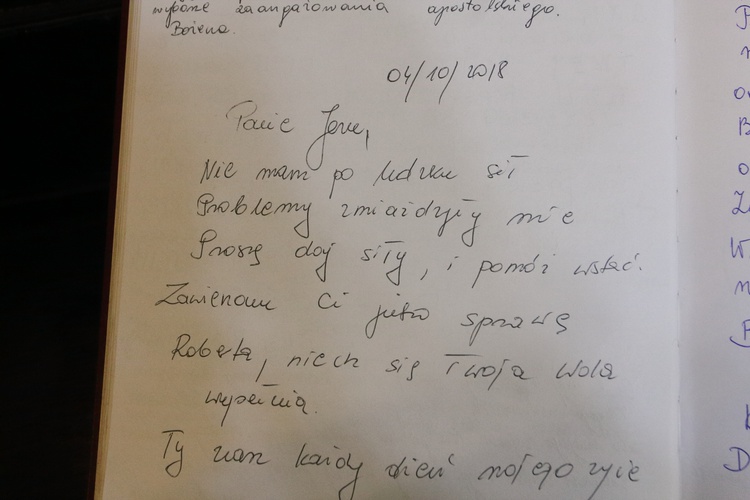 wyborze zaangażowania apostolskiego.
Bożena.
04/10/2018
Panie Jezu,
Nie mam po ludzku sił
Problemy zmiażdżyły mnie
Proszę daj siły, i pomóż wstać.
Zawierzam Ci jutro sprawę
Roberta, niech się Twoja wola
wypełnia.
Ty znasz każdy dzień mojego życie